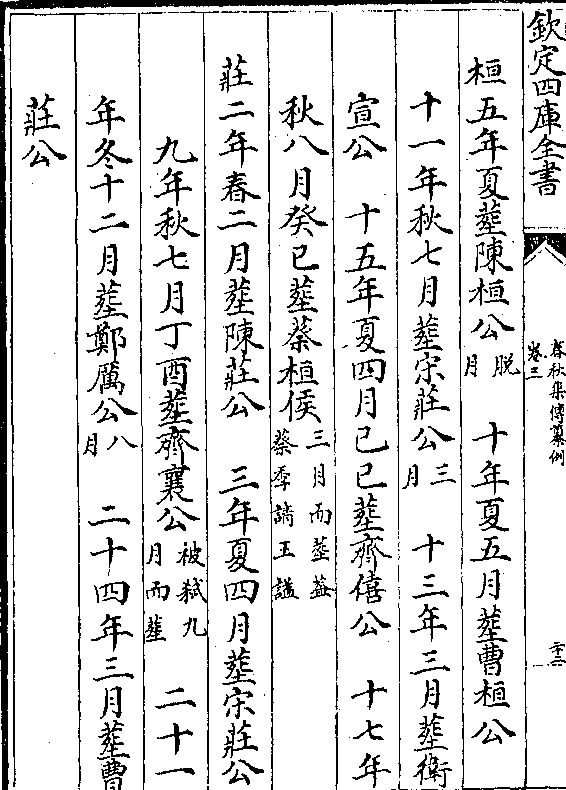 欽定四庫全書
春秋集傳纂例
卷三
桓五年夏塟陳桓公脫月 十年夏五月塟曹桓公
十一年秋七月塟宋莊公三月 十三年三月塟衛
宣公 十五年夏四月己巳塟齊僖公 十七年
秋八月癸巳塟蔡桓侯三月而塟葢蔡季請王謚
莊二年春二月塟陳莊公 三年夏四月塟宋莊公
九年秋七月丁酉塟齊襄公被弑九月而塟 二十一
年冬十二月塟鄭厲公八月 二十四年三月塟曹
莊公